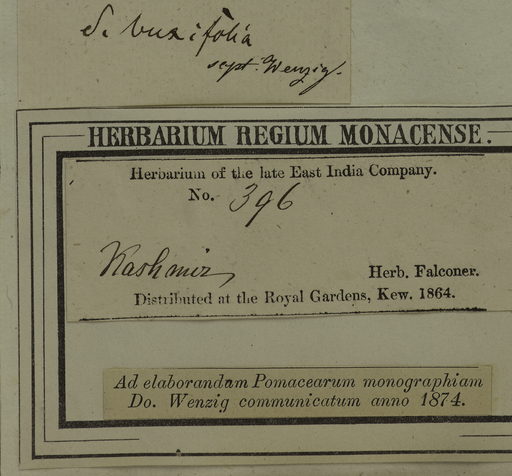 S. buxifolia
scpt. Wenzig.
HERBARIUM REGIUM MONACENSE.
Herbarium of the late East India Company.
No. 396
Kashmir
Herb. Falconer.
Distributed at the Royal Gardens, Kew. 1864.
Ad elaborandum Pomacearum monographiam
Do. Wenzig communicatum anno 1874.